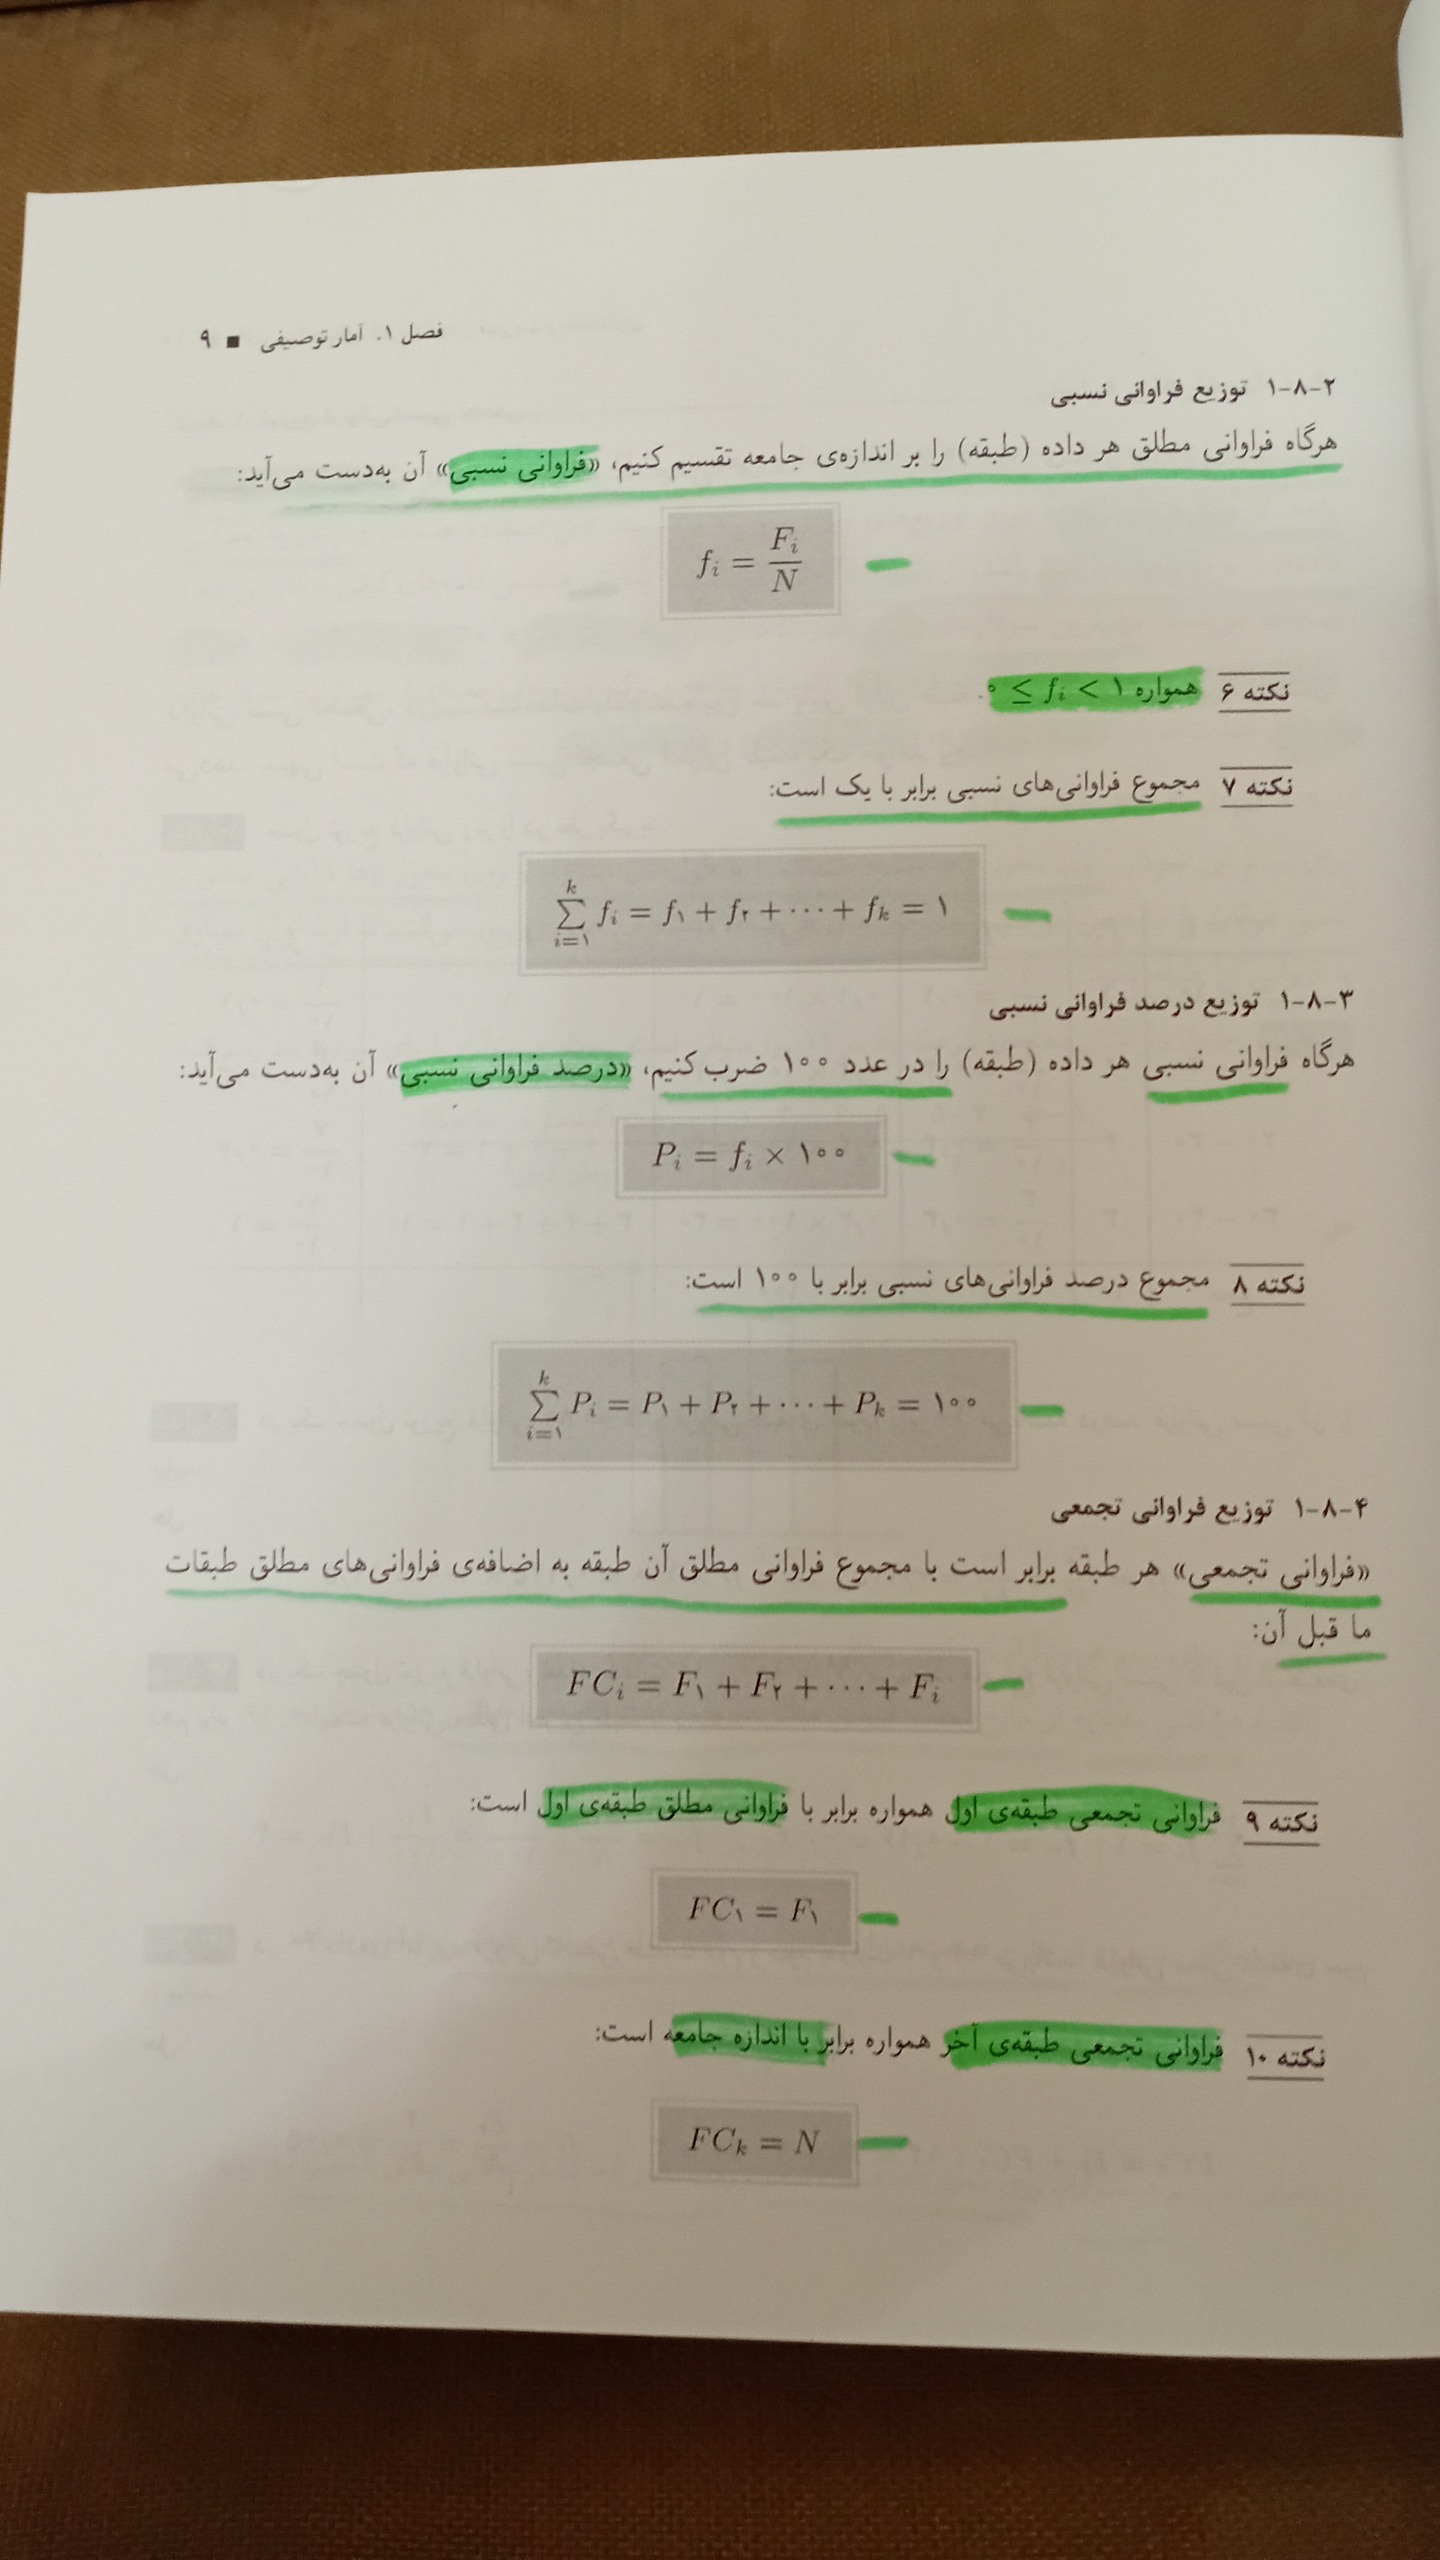 فصل ۱. آمار توصیفی ■ ۹
۱-۸-۲ توزیع فراوانی نسبی
هرگاه فراوانی مطلق هر داده (طبقه) را بر اندازه‌ی جامعه تقسیم کنیم، «فراوانی نسبی» آن به‌دست می‌آید:
fᵢ = Fᵢ / N
نکته ۶ همواره ۰ ≤ fᵢ < ۱.
نکته ۷ مجموع فراوانی‌های نسبی برابر با یک است:
∑ᵢ₌۱ᵏ fᵢ = f۱ + f۲ + ⋯ + fₖ = ۱
۱-۸-۳ توزیع درصد فراوانی نسبی
هرگاه فراوانی نسبی هر داده (طبقه) را در عدد ۱۰۰ ضرب کنیم، «درصد فراوانی نسبی» آن به‌دست می‌آید:
Pᵢ = fᵢ × ۱۰۰
نکته ۸ مجموع درصد فراوانی‌های نسبی برابر با ۱۰۰ است:
∑ᵢ₌۱ᵏ Pᵢ = P۱ + P۲ + ⋯ + Pₖ = ۱۰۰
۱-۸-۴ توزیع فراوانی تجمعی
«فراوانی تجمعی» هر طبقه برابر است با مجموع فراوانی مطلق آن طبقه به اضافه‌ی فراوانی‌های مطلق طبقات
ما قبل آن:
FCᵢ = F۱ + F۲ + ⋯ + Fᵢ
نکته ۹ فراوانی تجمعی طبقه‌ی اول همواره برابر با فراوانی مطلق طبقه‌ی اول است:
FC۱ = F۱
نکته ۱۰ فراوانی تجمعی طبقه‌ی آخر همواره برابر با اندازه جامعه است:
FCₖ = N